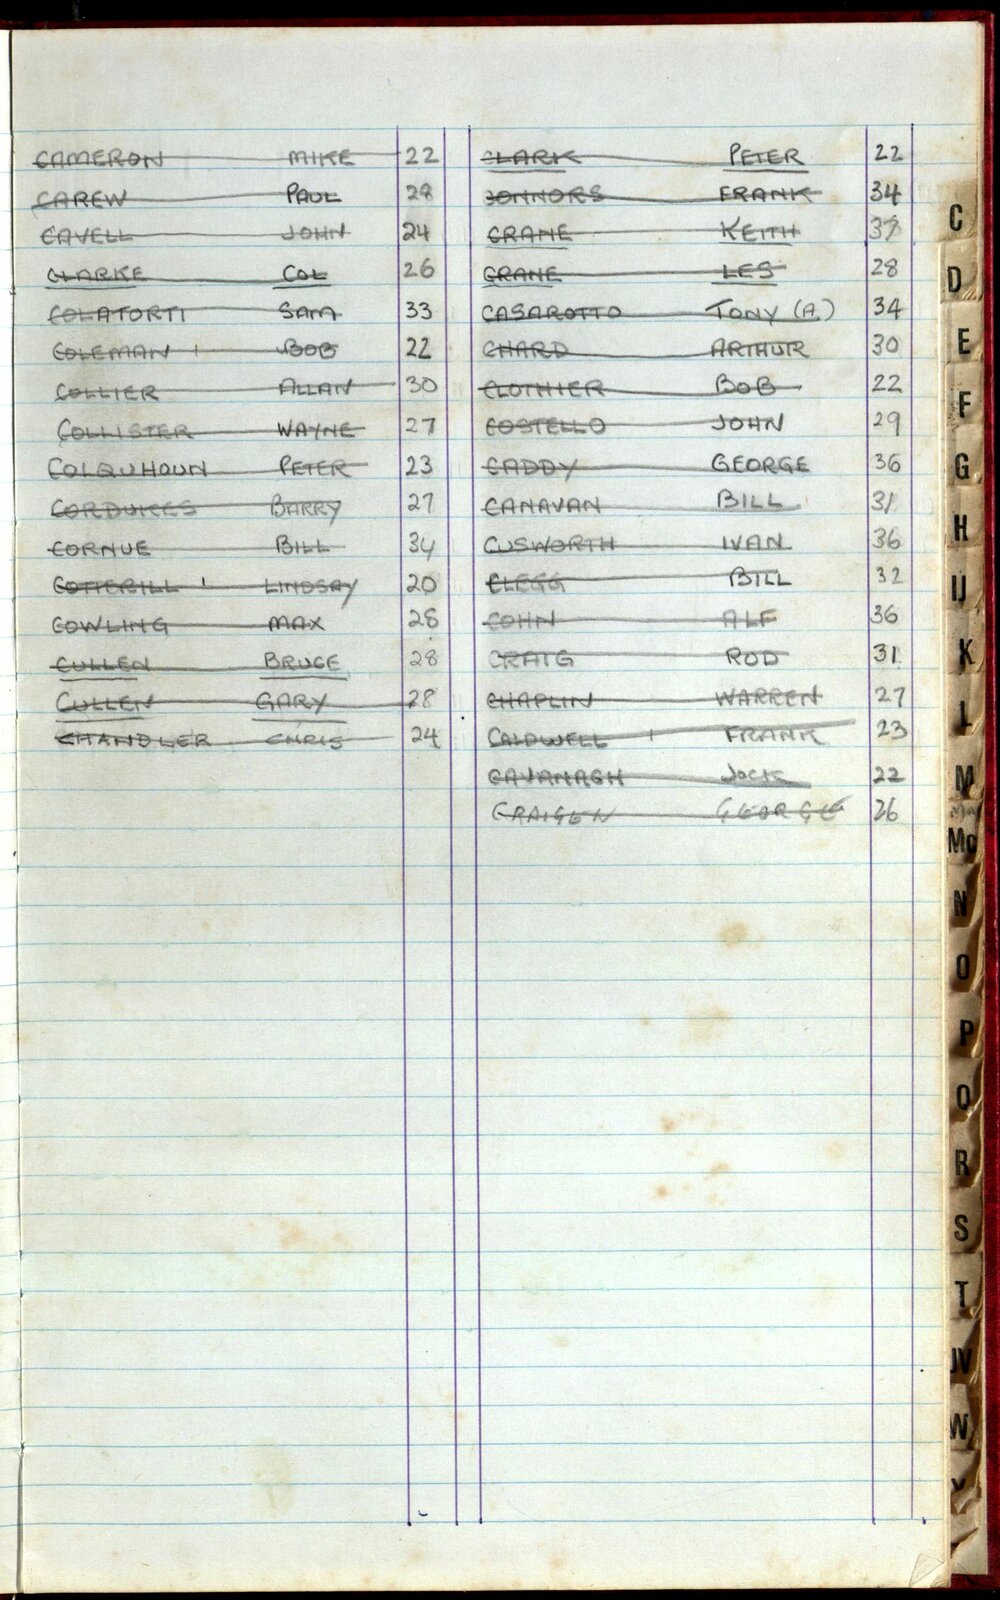 CAMERON MIKE 22
CAREW PAUL 28
CAVELL JOHN 24
CLARKE COL 26
COLATORTI SAM 33
COLEMAN BOB 22
COLLIER ALLAN 30
COLLISTER WAYNE 27
COLQUHOUN PETER 23
CORDUKES BARRY 27
CORNUE BILL 34
COTTERILL LINDSAY 20
COWLING MAX 28
CULLEN BRUCE 28
CULLEN GARY 28
CHANDLER CHRIS 24
CLARK PETER 22
CONNORS FRANK 34
CRANE KEITH
CRANE LES 28
CASAROTTO TONY (A) 34
CHARD ARTHUR 30
CLOTHIER BOB 22
COSTELLO JOHN 29
CADDY GEORGE 36
CANAVAN BILL 31
CUSWORTH IVAN 36
CLEGG BILL 32
COHN ALF 36
CRAIG ROD 31
CHAPLIN WARREN 27
CALDWELL FRANK 23
CAVANAGH JOCK 22
CRAIGEN GEORGE 26
C
D
E
F
G
H
IJ
K
L
M
Mc
N
O
P
Q
R
S
T
UV
W